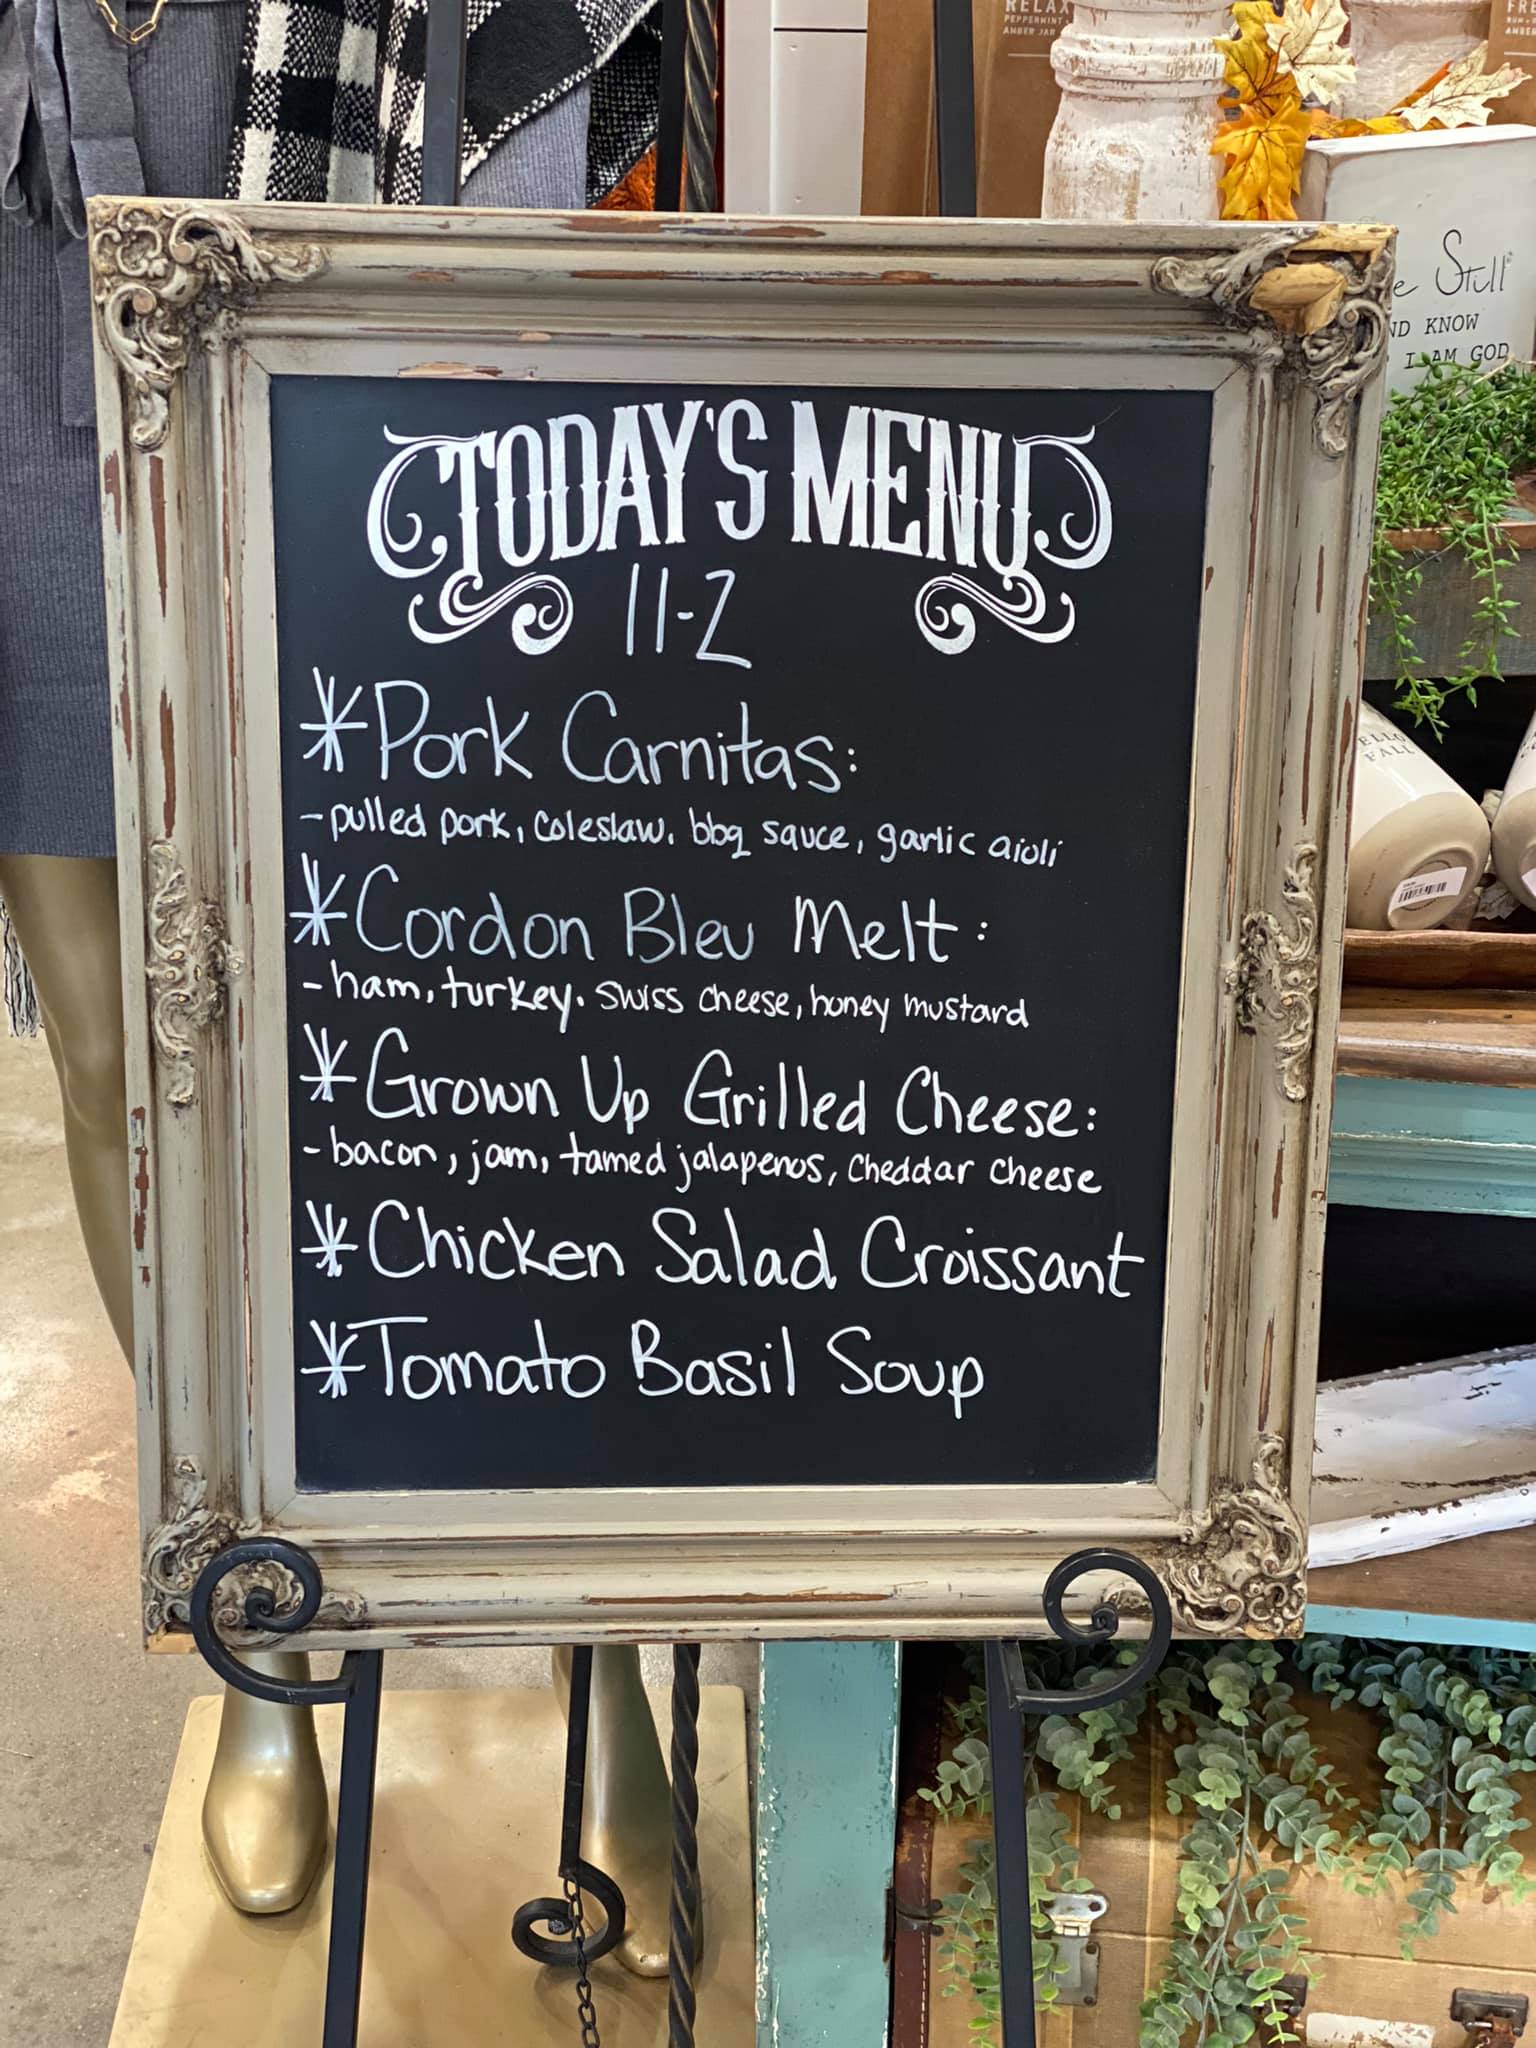 RELAX
PEPPERMINT
AMBER JAR
FRE
AMBER
Still
ND KNOW
I AM GOD
TODAY'S MENU
11-2
*Pork Carnitas:
-pulled pork, coleslaw, bbq sauce, garlic aioli
*Cordon Bleu Melt:
-ham, turkey. swiss cheese, honey mustard
*Grown Up Grilled Cheese:
-bacon, jam, tamed jalapenos, cheddar cheese
*Chicken Salad Croissant
*Tomato Basil Soup
ELLO
FALL